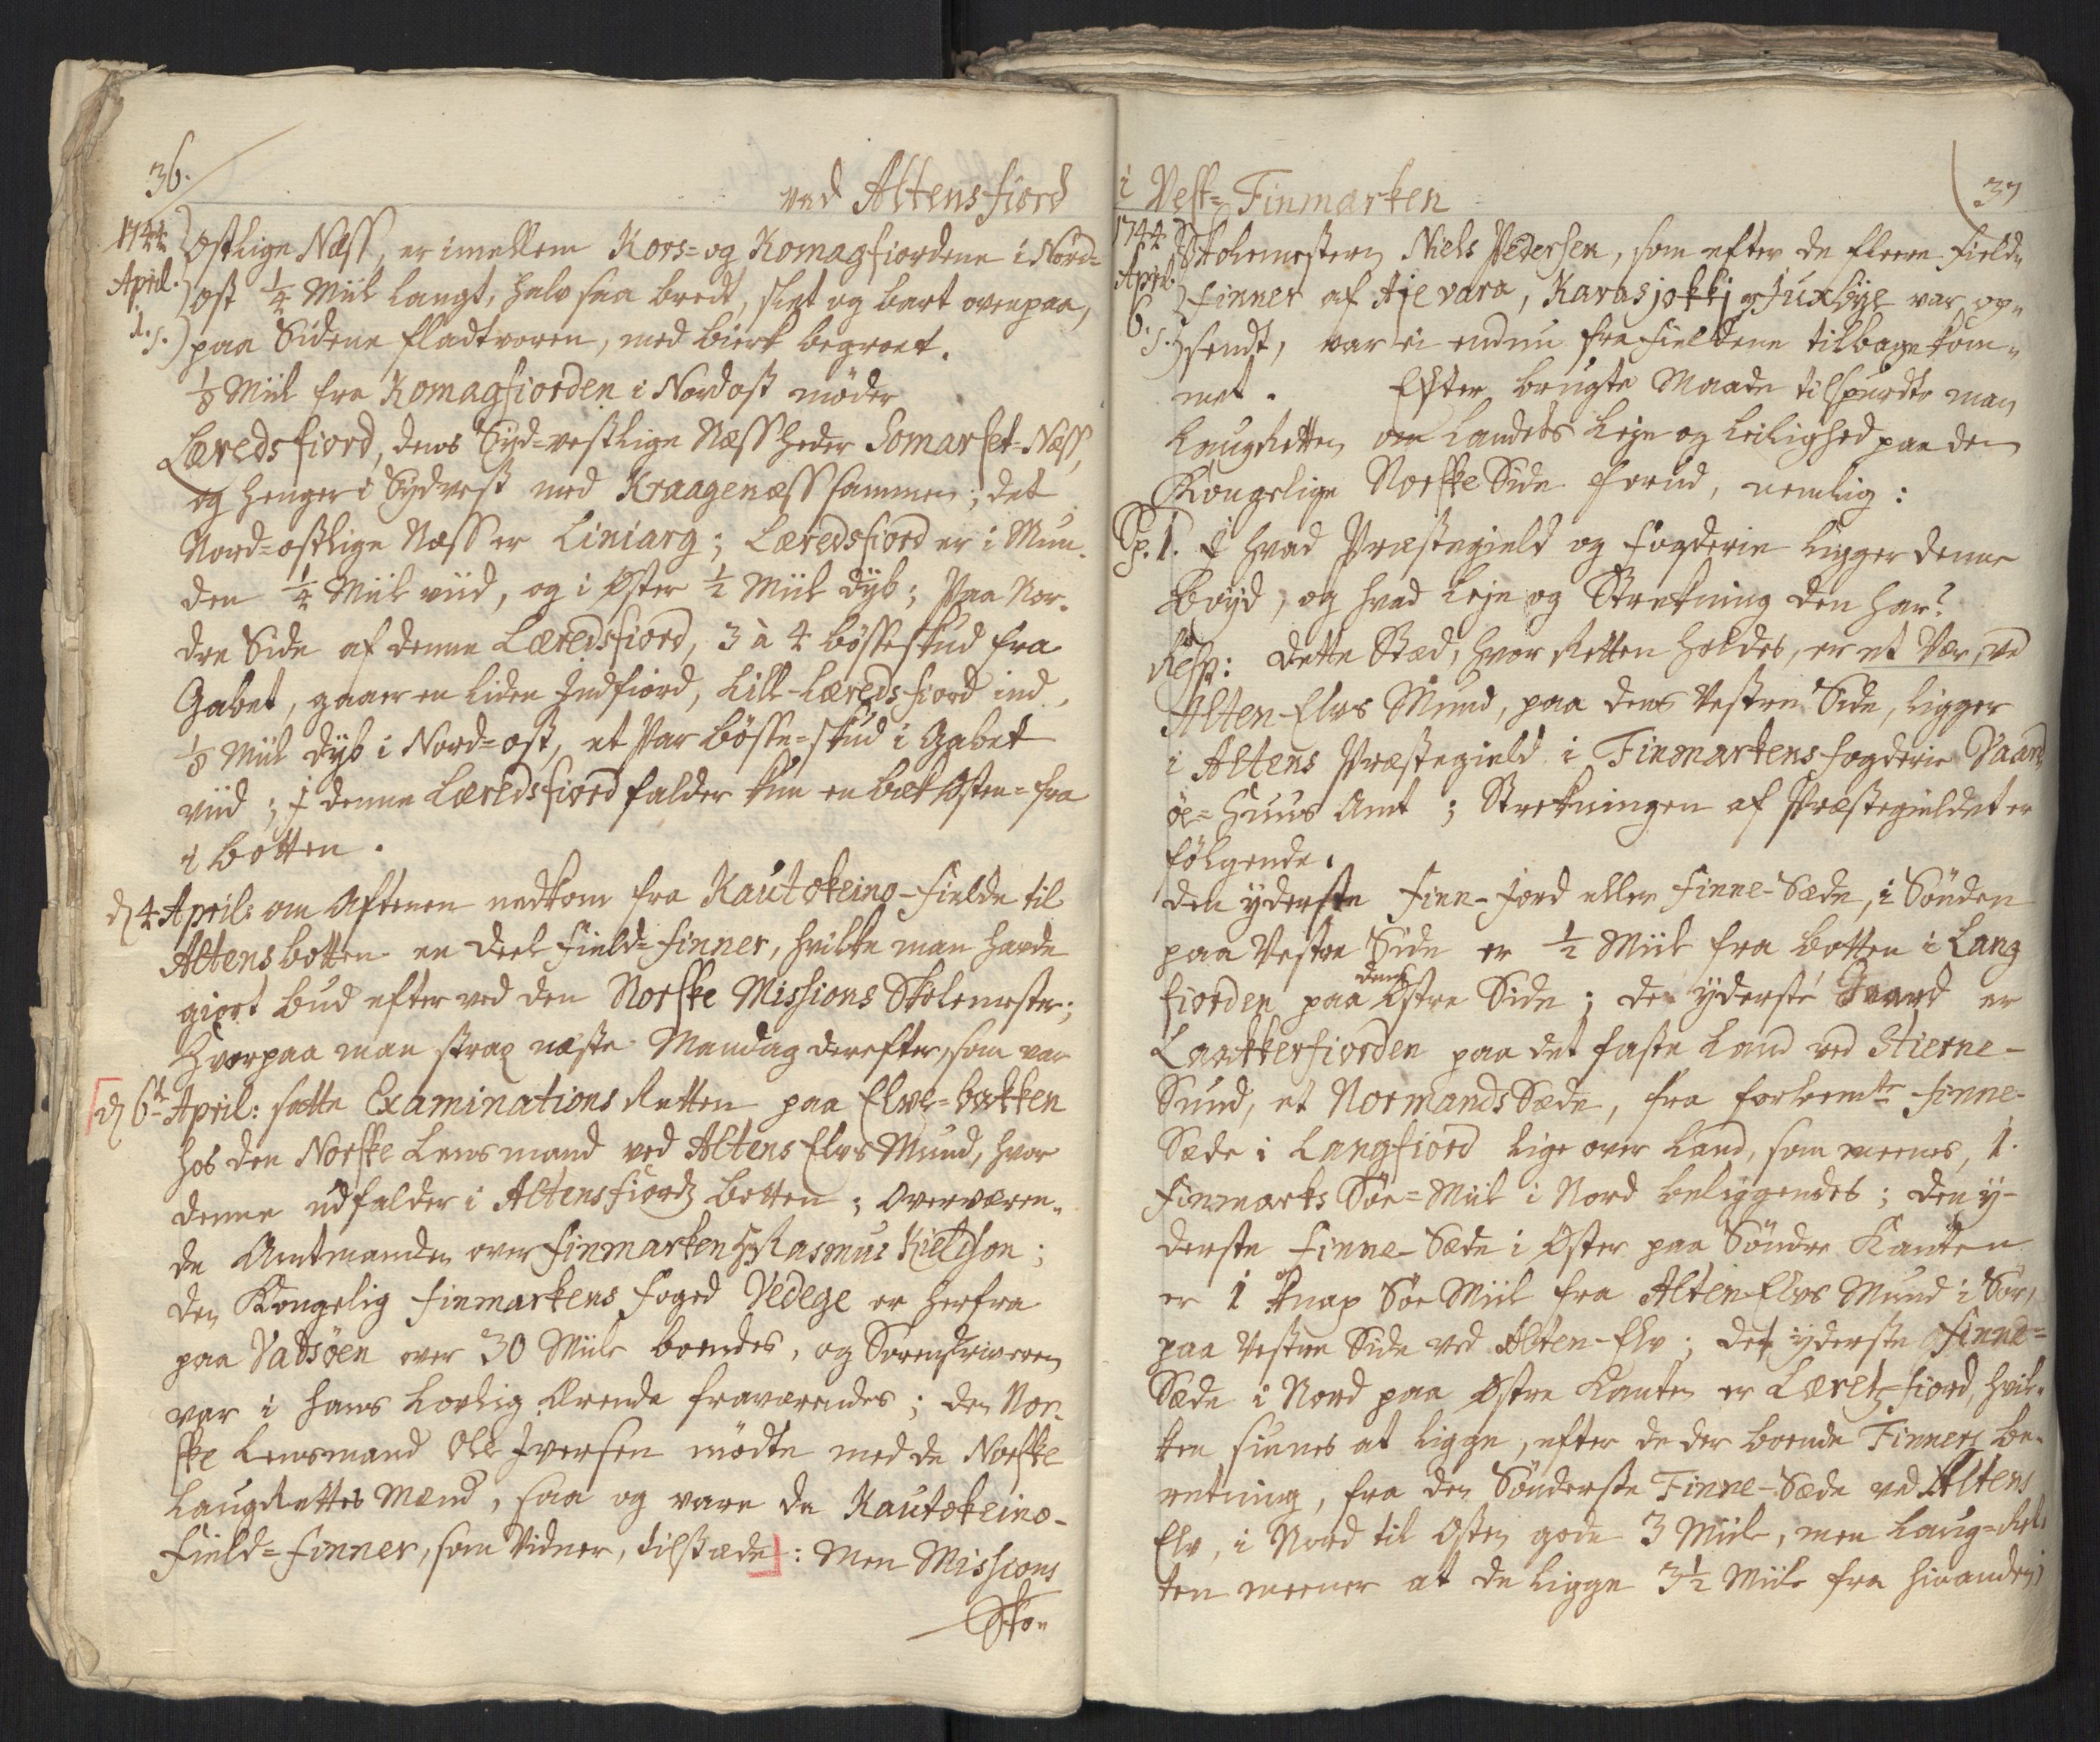 36.
ved Altensfiord
1744
April.
1. s.
Østlige Næss, er imellem Kors- og Komagfiordene i Nord-
ost 1/4 Miil langt, halv saa bredt, slet og bart ovenpaa,
paa Sidene fladtvoren, med birk begroet.
1/8 Miil fra Komagfiorden i Nordost møder
Læredsfiord, dens Syd-vestlige Næss heder Somarset-Næss,
og henger i Sydvest med Kraagenæss sammen; det
Nord-ostlige Næss er Liniarg; Læredsfiord er i Mun-
den 1/4 Miil viid, og i Øster 1/2 Miil dyb; Paa Nor-
dre Side af denne Læredsfiord, 3 à 4 bösseskud fra
Gabet, gaaer en liden Indfiord, Lill-Læredsfiord ind,
1/8 Miil dyb i Nord-ost, et Par bösse-skud i Gabet
viid; I denne Læredsfiord falder kun en bæk Østen-fra
i botten.
d 4 April: om Aftenen nedkom fra Kautokeino-Fielde til
Altensbotten en deel Field-Finner, hvilke man havde
giort bud efter ved den Norske Missions Skolemester;
hvorpaa man strax næste Mandag derefter, som var
d 6te April: satte Examinations Retten paa Elve-bakken
hos den Norske Lensmand ved Altens Elvs Mund, hvor
denne udfalder i Altensfiords botten; Overværen-
de Amtmanden over Finmarken Hr Rasmus Kieldson;
den Kongelig Finmarkens Foged Vedege er herfra
paa Vadsöen over 30 Miile boendes, og Sorenskriveren
var i hans Lovlig Ærende fraværendes; den Nor-
ske Lensmand Ole Iversen mödte med de Norske
LaugRettes Mænd, saa og vare de Kautokeino-
Field-Finner, som Vidner, tilstæde: Men Missions
Sko-
i Vest-Finmarken
37
1744
April.
6. s.
Skolemesteren Niels Pedersen, som efter de fleere Field-
Finner af Ajevara, Karasjokkj og Juxbÿe var op-
sendt, var ei endnu fra Fieldene tilbagekom-
met. Efter brugte Maade tilspurdte man
LaugRetten om Landets Leje og Leilighed paa den
Kongelige Norske Side forud, nemlig:
Sp. 1. I hvad Præstegield og Fogderie ligger denne
bÿgd, og hvad Leje og Strekning den har?
Resp: dette Stæd, hvor Retten holdes, er et Vær, ved
Alten-Elvs Mund, paa dens Vestre Side, ligger
i Altens Præstegield i Finmarkens Fogderie Vaard-
öe-Huus Amt; Strekningen af Præstegieldet er
fölgende.
den yderste Finn-Jord eller Finne-Sæde, i Sönden
paa Vestre Side er 1/2 Miil fra botten i Lang
fiorden paa dens Østre Side; den yderste Gaard er
Laakkerfiorden paa det faste Land ved Stierne-
Sund, et Normands Sæde, fra forbemte Finne-
Sæde i Langfiord lige over Land, som meenes, 1.
Finmarks Söe-Miil i Nord beliggendes; den y-
derste Finne-Sæde i Øster paa Söndre Kanten
er 1 knap Söe Miil fra Alten-Elvs Mund i Sör,
paa Vestre Side ved Alten-Elv; det yderste Finne-
Sæde i Nord paa Østre Kanten er Læretzfiord, hvil-
ken siunes at ligge, efter de der boende Finners be-
retning, fra den Sönderste Finne-Sæde ved Altens
Elv, i Nord til Osten gode 3 Miile, men Laug-Ret-
ten meener at de ligge 3 1/2 Miile fra hinanden;